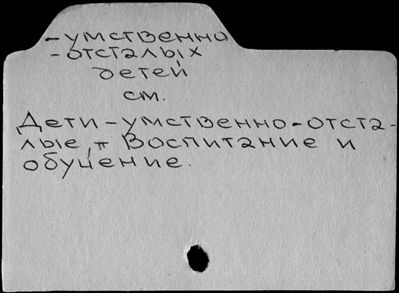 -умственно
-отсталых
детей
см.
Дети-умственно-отста-
лые, π Воспитание и
обучение.